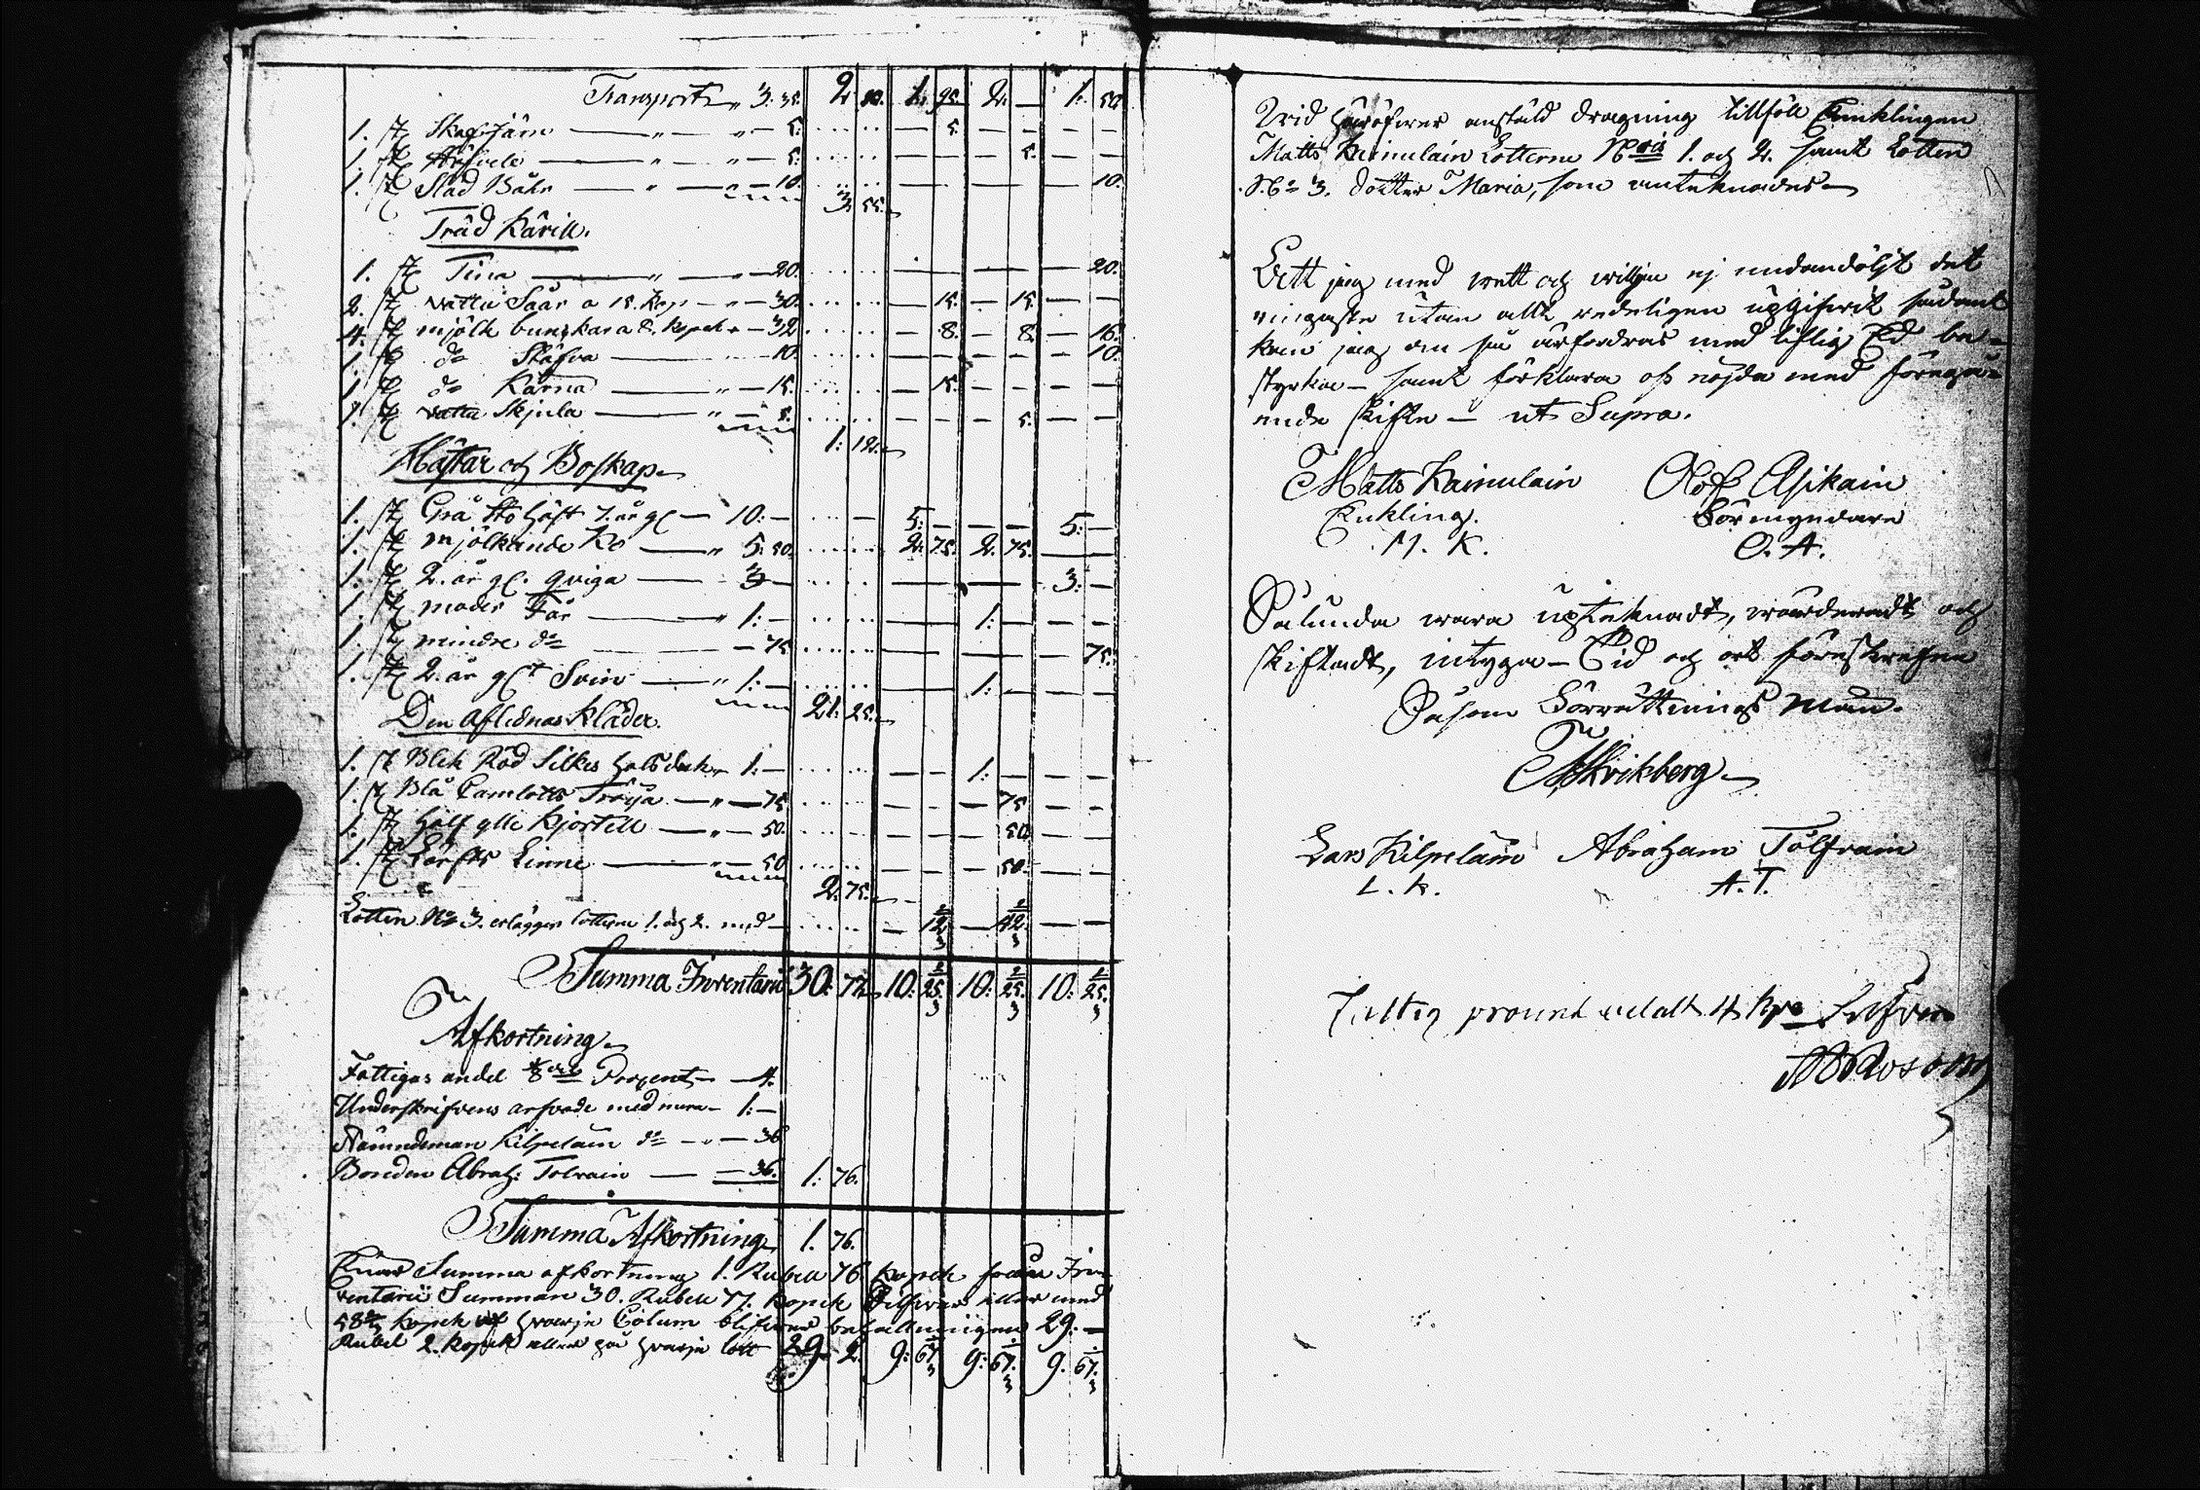 Transport „ 3. 35. 2. 80. 1. 95. 2. — 1. 50.
1. st Skafjärn — „ — 5. — 5. — — — —
1. st — „ — 5. — — — 5. — —
1. st Släd — „ — 10. — — — 10.
3. 55.
Träd Kärill.
1. st Tina — „ — 20. — — — 20.
2. st vattu Såar a 15. Kop — „ — 30. — 15. — 15. — —
4. st mjölk bunkar a 8. kopek „ — 32 — 8. — 8. — 16.
1. st do Stäfva — 10. — — — — — 10.
1. st do Kärna — „ — 15. — 15. — — — —
1. st vattu Skjula — „ — 5. — — — 5. — —
1: 12.
Hästar och Boskap
1. st Grå Sto häst 7. år gl — 10: — 5: — — — 5: —
1. st mjölkande Ko — „ 5: 50. 2. 75. 2. 75. —
1. st 2. år gl. qviga — 3 — — — 3: —
1. st moder Får — „ 1: — — 1: — — —
1. st mindre do — 75 — — — 75.
1. st 2. år glt Svin — „ 1: — — 1: — — —
21: 25.
Den Aflednas Kläder.
1. st Blek Röd Silkes halsduk „ 1: — — — 1: — — —
1. st Blå Camlotts Tröija — „ — 75 — — — 75 — —
1. st half ylle Kjortell — „ — 50. — — — 50 — —
1. st Lärfts Linne — „ — 50 — — — 50. — —
2. 75.
Lotten No 3. erlägger lotterne 1. och 2. med — 12 2/3 — 42 2/3 — —
Summa Inventarii 30. 77. 10: 25 2/3 10: 25 2/3 10: 25 2/3
Afkortning
Fattigas andel 1/8 Procent — 4.
Underskrifvens arfvode med mera — 1: —
Nämndeman Kilpeläin do — „ — 36
Bonden Abrah: Tolvain — — 36. 1: 76.
Summa Afkortning 1. 76.
Summa afkortning 1. Rubell 76 kopek från In-
ventarii Summan 30. Rubell 77. kopek Silfver eller med
58 2/3 kopek af hvarje Colum blifver behållningen 29: —
Rubel 2. kopek eller på hvarje lott 29. 2. 9: 67 9: 67. 9. 67.
Wid häröfver anstäld dragning tillföll Enklingen
Matts Kainulain Lotterne No 1. och 2. samt Lotten
No 3. dotter Maria, som antecknades —
Att jag med wett och willja ej undandöljt det
ringaste utan allt redeligen upgifvit sådant
kan jag om så ärfordras med liflig Ed be-
styrka — samt förklara oss nöjda med föregå-
ende skifte — ut Supra.
Matts Kainulain Olof Asikain
Enkling. Förmyndare
M. K. O. A.
Sålunda wara upteknadt, wärderadt och
skiftadt, intyga — Tid och ort förestrefne
Såsom Förrättnings Män.
Skrikberg
Lars Kilpeläin Abraham Tolfvain
L. K. A. T.
Fattig procent betalt 4 kop Silfver